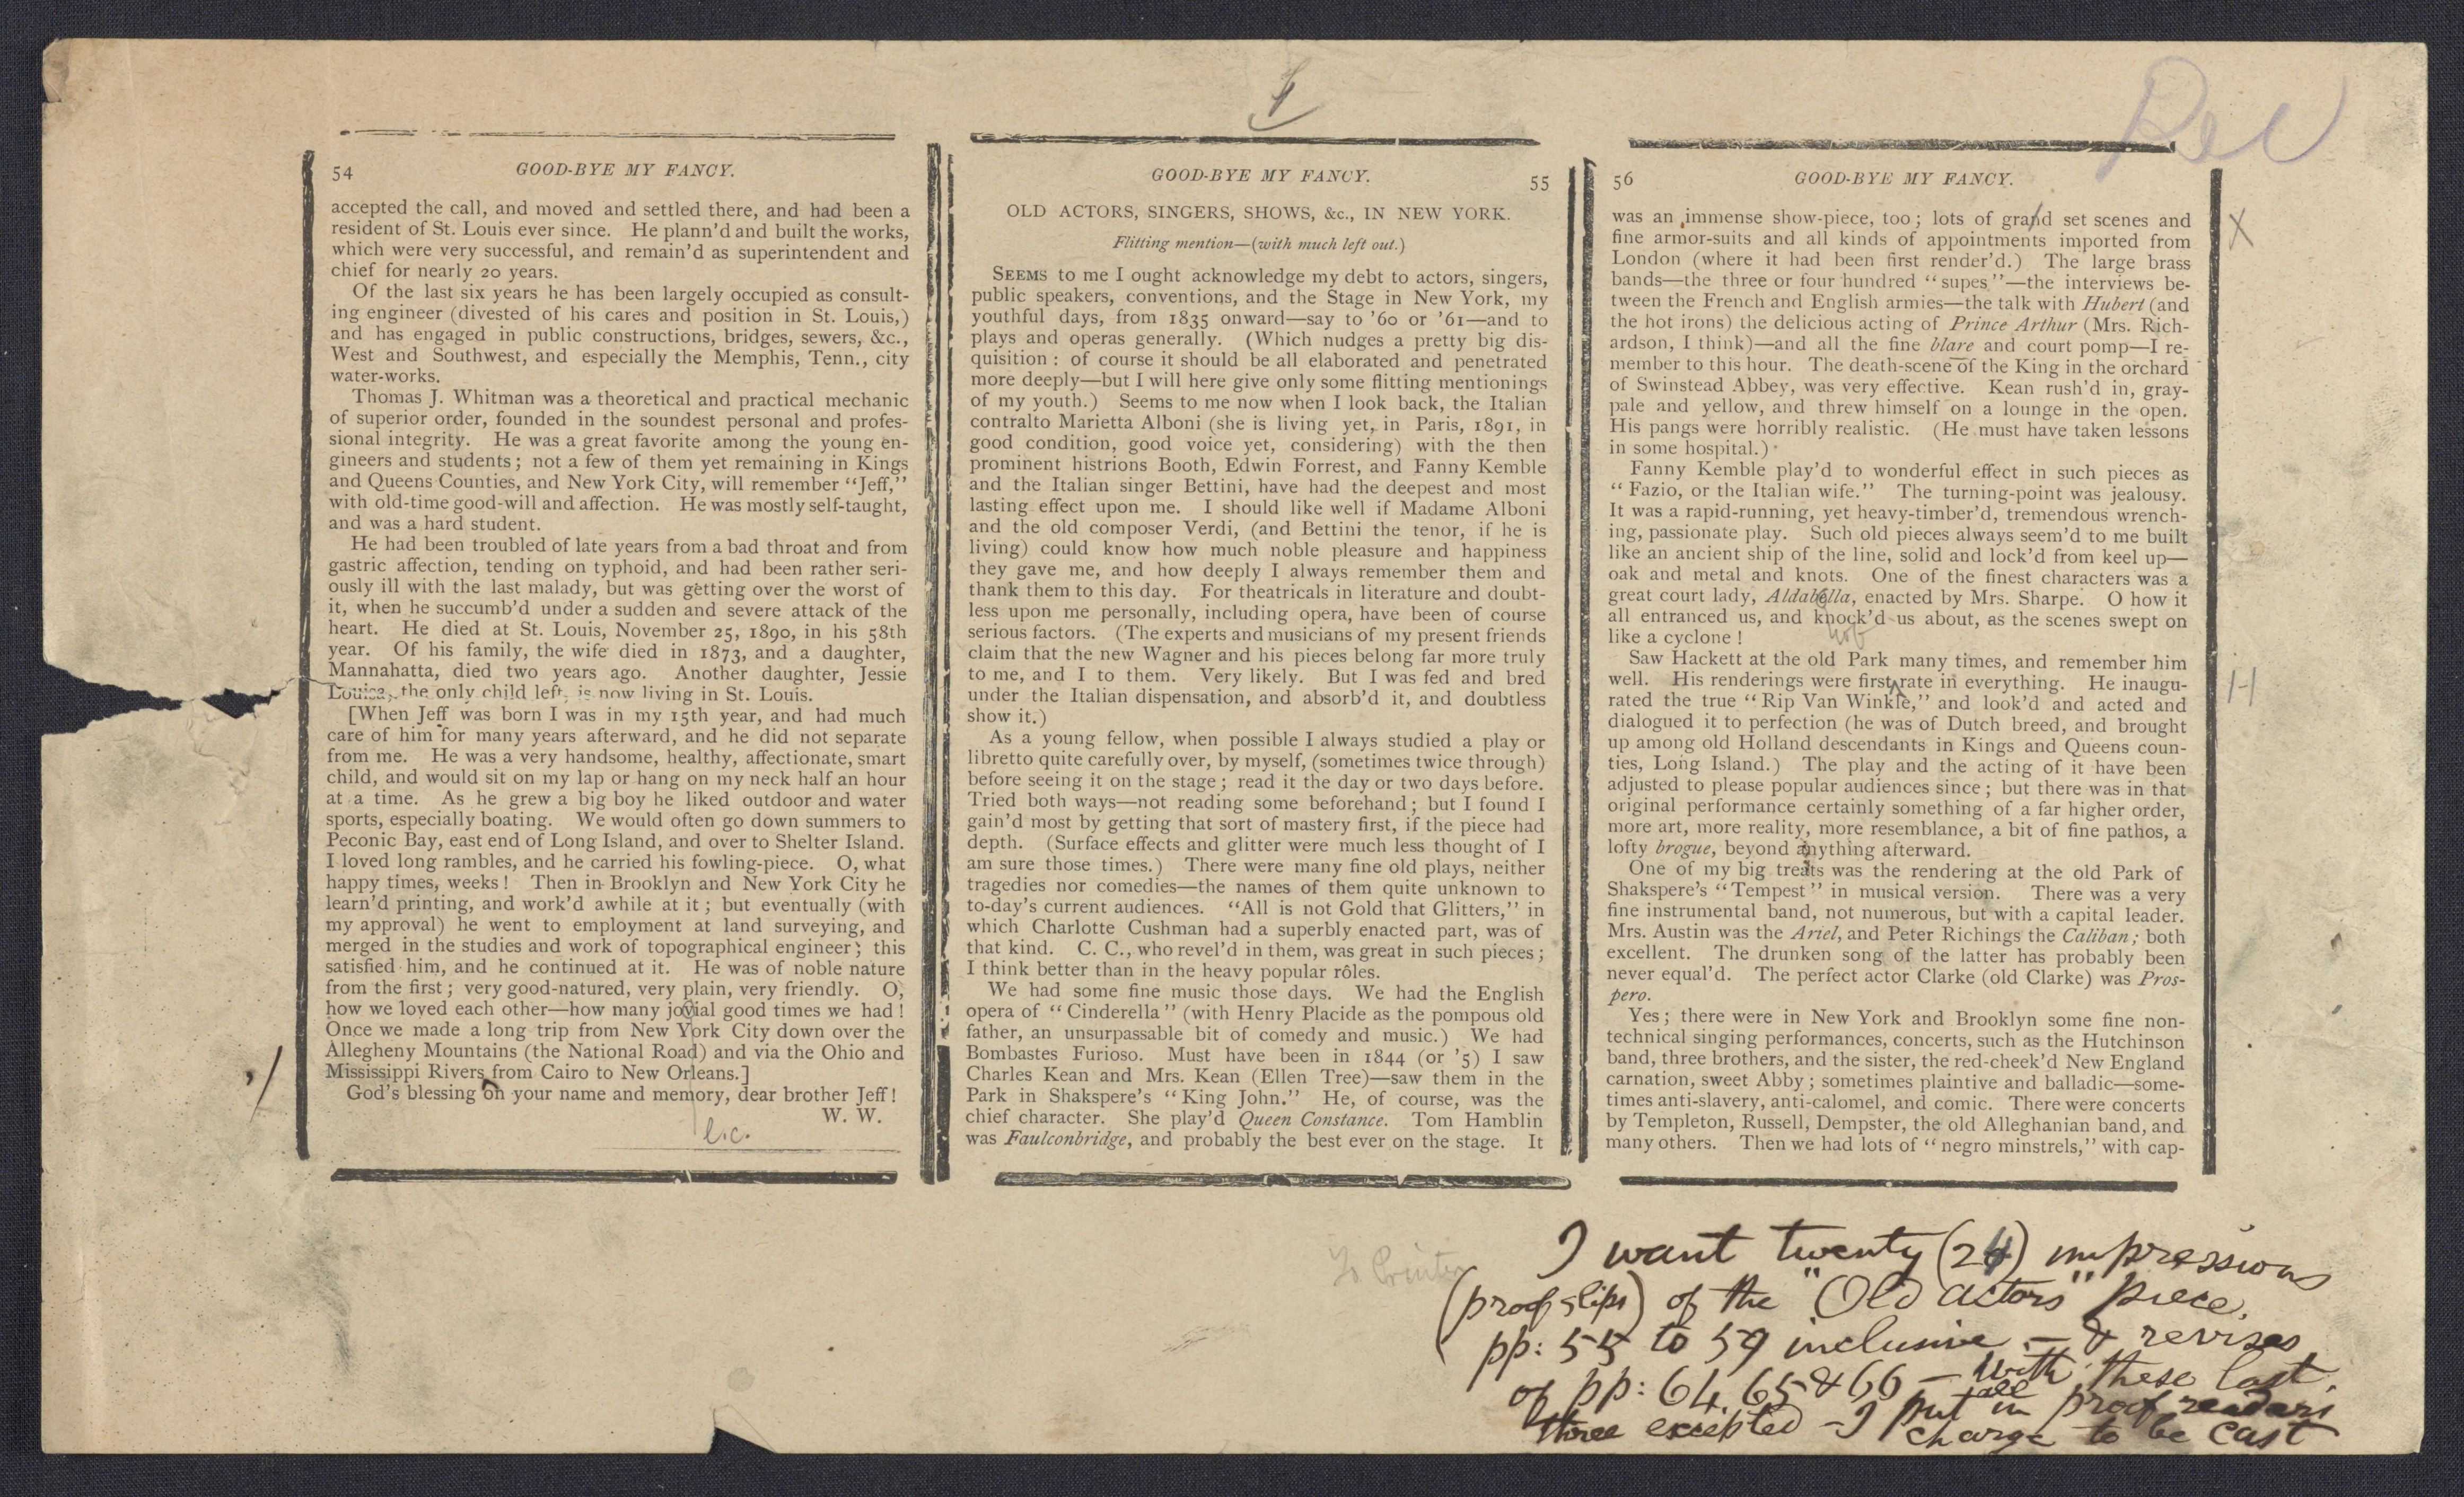 Rev
54 GOOD-BYE MY FANCY.
accepted the call, and moved and settled there, and had been a
resident of St. Louis ever since. He plann'd and built the works,
which were very successful, and remain'd as superintendent and
chief for nearly 20 years.
Of the last six years he has been largely occupied as consult-
ing engineer (divested of his cares and position in St. Louis,)
and has engaged in public constructions, bridges, sewers, &c.,
West and Southwest, and especially the Memphis, Tenn., city
water-works.
Thomas J. Whitman was a theoretical and practical mechanic
of superior order, founded in the soundest personal and profes-
sional integrity. He was a great favorite among the young en-
gineers and students; not a few of them yet remaining in Kings
and Queens Counties, and New York City, will remember "Jeff,"
with old-time good-will and affection. He was mostly self-taught,
and was a hard student.
He had been troubled of late years from a bad throat and from
gastric affection, tending on typhoid, and had been rather seri-
ously ill with the last malady, but was getting over the worst of
it, when he succumb'd under a sudden and severe attack of the
heart. He died at St. Louis, November 25, 1890, in his 58th
year. Of his family, the wife died in 1873, and a daughter,
Mannahatta, died two years ago. Another daughter, Jessie
Louisa, the only child left, is now living in St. Louis.
[When Jeff was born I was in my 15th year, and had much
care of him for many years afterward, and he did not separate
from me. He was a very handsome, healthy, affectionate, smart
child, and would sit on my lap or hang on my neck half an hour
at a time. As he grew a big boy he liked outdoor and water
sports, especially boating. We would often go down summers to
Peconic Bay, east end of Long Island, and over to Shelter Island.
I loved long rambles, and he carried his fowling-piece. O, what
happy times, weeks! Then in Brooklyn and New York City he
learn'd printing, and work'd awhile at it; but eventually (with
my approval) he went to employment at land surveying, and
merged in the studies and work of topographical engineer; this
satisfied him, and he continued at it. He was of noble nature
from the first; very good-natured, very plain, very friendly. O,
how we loved each other—how many jovial good times we had!
Once we made a long trip from New York City down over the
Allegheny Mountains (the National Road) and via the Ohio and
Mississippi Rivers from Cairo to New Orleans.]
God's blessing on your name and memory, dear brother Jeff!
W. W.
l.c.
GOOD-BYE MY FANCY. 55
OLD ACTORS, SINGERS, SHOWS, &c., IN NEW YORK.
Flitting mention—(with much left out.)
SEEMS to me I ought acknowledge my debt to actors, singers,
public speakers, conventions, and the Stage in New York, my
youthful days, from 1835 onward—say to '60 or '61—and to
plays and operas generally. (Which nudges a pretty big dis-
quisition: of course it should be all elaborated and penetrated
more deeply—but I will here give only some flitting mentionings
of my youth.) Seems to me now when I look back, the Italian
contralto Marietta Alboni (she is living yet, in Paris, 1891, in
good condition, good voice yet, considering) with the then
prominent histrions Booth, Edwin Forrest, and Fanny Kemble
and the Italian singer Bettini, have had the deepest and most
lasting effect upon me. I should like well if Madame Alboni
and the old composer Verdi, (and Bettini the tenor, if he is
living) could know how much noble pleasure and happiness
they gave me, and how deeply I always remember them and
thank them to this day. For theatricals in literature and doubt-
less upon me personally, including opera, have been of course
serious factors. (The experts and musicians of my present friends
claim that the new Wagner and his pieces belong far more truly
to me, and I to them. Very likely. But I was fed and bred
under the Italian dispensation, and absorb'd it, and doubtless
show it.)
As a young fellow, when possible I always studied a play or
libretto quite carefully over, by myself, (sometimes twice through)
before seeing it on the stage; read it the day or two days before.
Tried both ways—not reading some beforehand; but I found I
gain'd most by getting that sort of mastery first, if the piece had
depth. (Surface effects and glitter were much less thought of I
am sure those times.) There were many fine old plays, neither
tragedies nor comedies—the names of them quite unknown to
to-day's current audiences. "All is not Gold that Glitters," in
which Charlotte Cushman had a superbly enacted part, was of
that kind. C. C., who revel'd in them, was great in such pieces;
I think better than in the heavy popular rôles.
We had some fine music those days. We had the English
opera of "Cinderella" (with Henry Placide as the pompous old
father, an unsurpassable bit of comedy and music.) We had
Bombastes Furioso. Must have been in 1844 (or '5) I saw
Charles Kean and Mrs. Kean (Ellen Tree)—saw them in the
Park in Shakspere's "King John." He, of course, was the
chief character. She play'd Queen Constance. Tom Hamblin
was Faulconbridge, and probably the best ever on the stage. It
56 GOOD-BYE MY FANCY.
was an immense show-piece, too; lots of grand set scenes and
fine armor-suits and all kinds of appointments imported from
London (where it had been first render'd.) The large brass
bands—the three or four hundred "supes"—the interviews be-
tween the French and English armies—the talk with Hubert (and
the hot irons) the delicious acting of Prince Arthur (Mrs. Rich-
ardson, I think)—and all the fine blare and court pomp—I re-
member to this hour. The death-scene of the King in the orchard
of Swinstead Abbey, was very effective. Kean rush'd in, gray-
pale and yellow, and threw himself on a lounge in the open.
His pangs were horribly realistic. (He must have taken lessons
in some hospital.)
Fanny Kemble play'd to wonderful effect in such pieces as
"Fazio, or the Italian wife." The turning-point was jealousy.
It was a rapid-running, yet heavy-timber'd, tremendous wrench-
ing, passionate play. Such old pieces always seem'd to me built
like an ancient ship of the line, solid and lock'd from keel up—
oak and metal and knots. One of the finest characters was a
great court lady, Aldabella, enacted by Mrs. Sharpe. O how it
all entranced us, and knock'd us about, as the scenes swept on
like a cyclone!
Saw Hackett at the old Park many times, and remember him
well. His renderings were first rate in everything. He inaugu-
rated the true "Rip Van Winkle," and look'd and acted and
dialogued it to perfection (he was of Dutch breed, and brought
up among old Holland descendants in Kings and Queens coun-
ties, Long Island.) The play and the acting of it have been
adjusted to please popular audiences since; but there was in that
original performance certainly something of a far higher order,
more art, more reality, more resemblance, a bit of fine pathos, a
lofty brogue, beyond anything afterward.
One of my big treats was the rendering at the old Park of
Shakspere's "Tempest" in musical version. There was a very
fine instrumental band, not numerous, but with a capital leader.
Mrs. Austin was the Ariel, and Peter Richings the Caliban; both
excellent. The drunken song of the latter has probably been
never equal'd. The perfect actor Clarke (old Clarke) was Pros-
pero.
Yes; there were in New York and Brooklyn some fine non-
technical singing performances, concerts, such as the Hutchinson
band, three brothers, and the sister, the red-cheek'd New England
carnation, sweet Abby; sometimes plaintive and balladic—some-
times anti-slavery, anti-calomel, and comic. There were concerts
by Templeton, Russell, Dempster, the old Alleghanian band, and
many others. Then we had lots of "negro minstrels," with cap-
X
To Printer
I want twenty (24) impressions
(proof slips) of the "Old Actors" piece,
pp: 55 to 59 inclusive — & revises
of pp: 64, 65 & 66 — with these last
three excepted — I put all in proof readers
charge to be cast